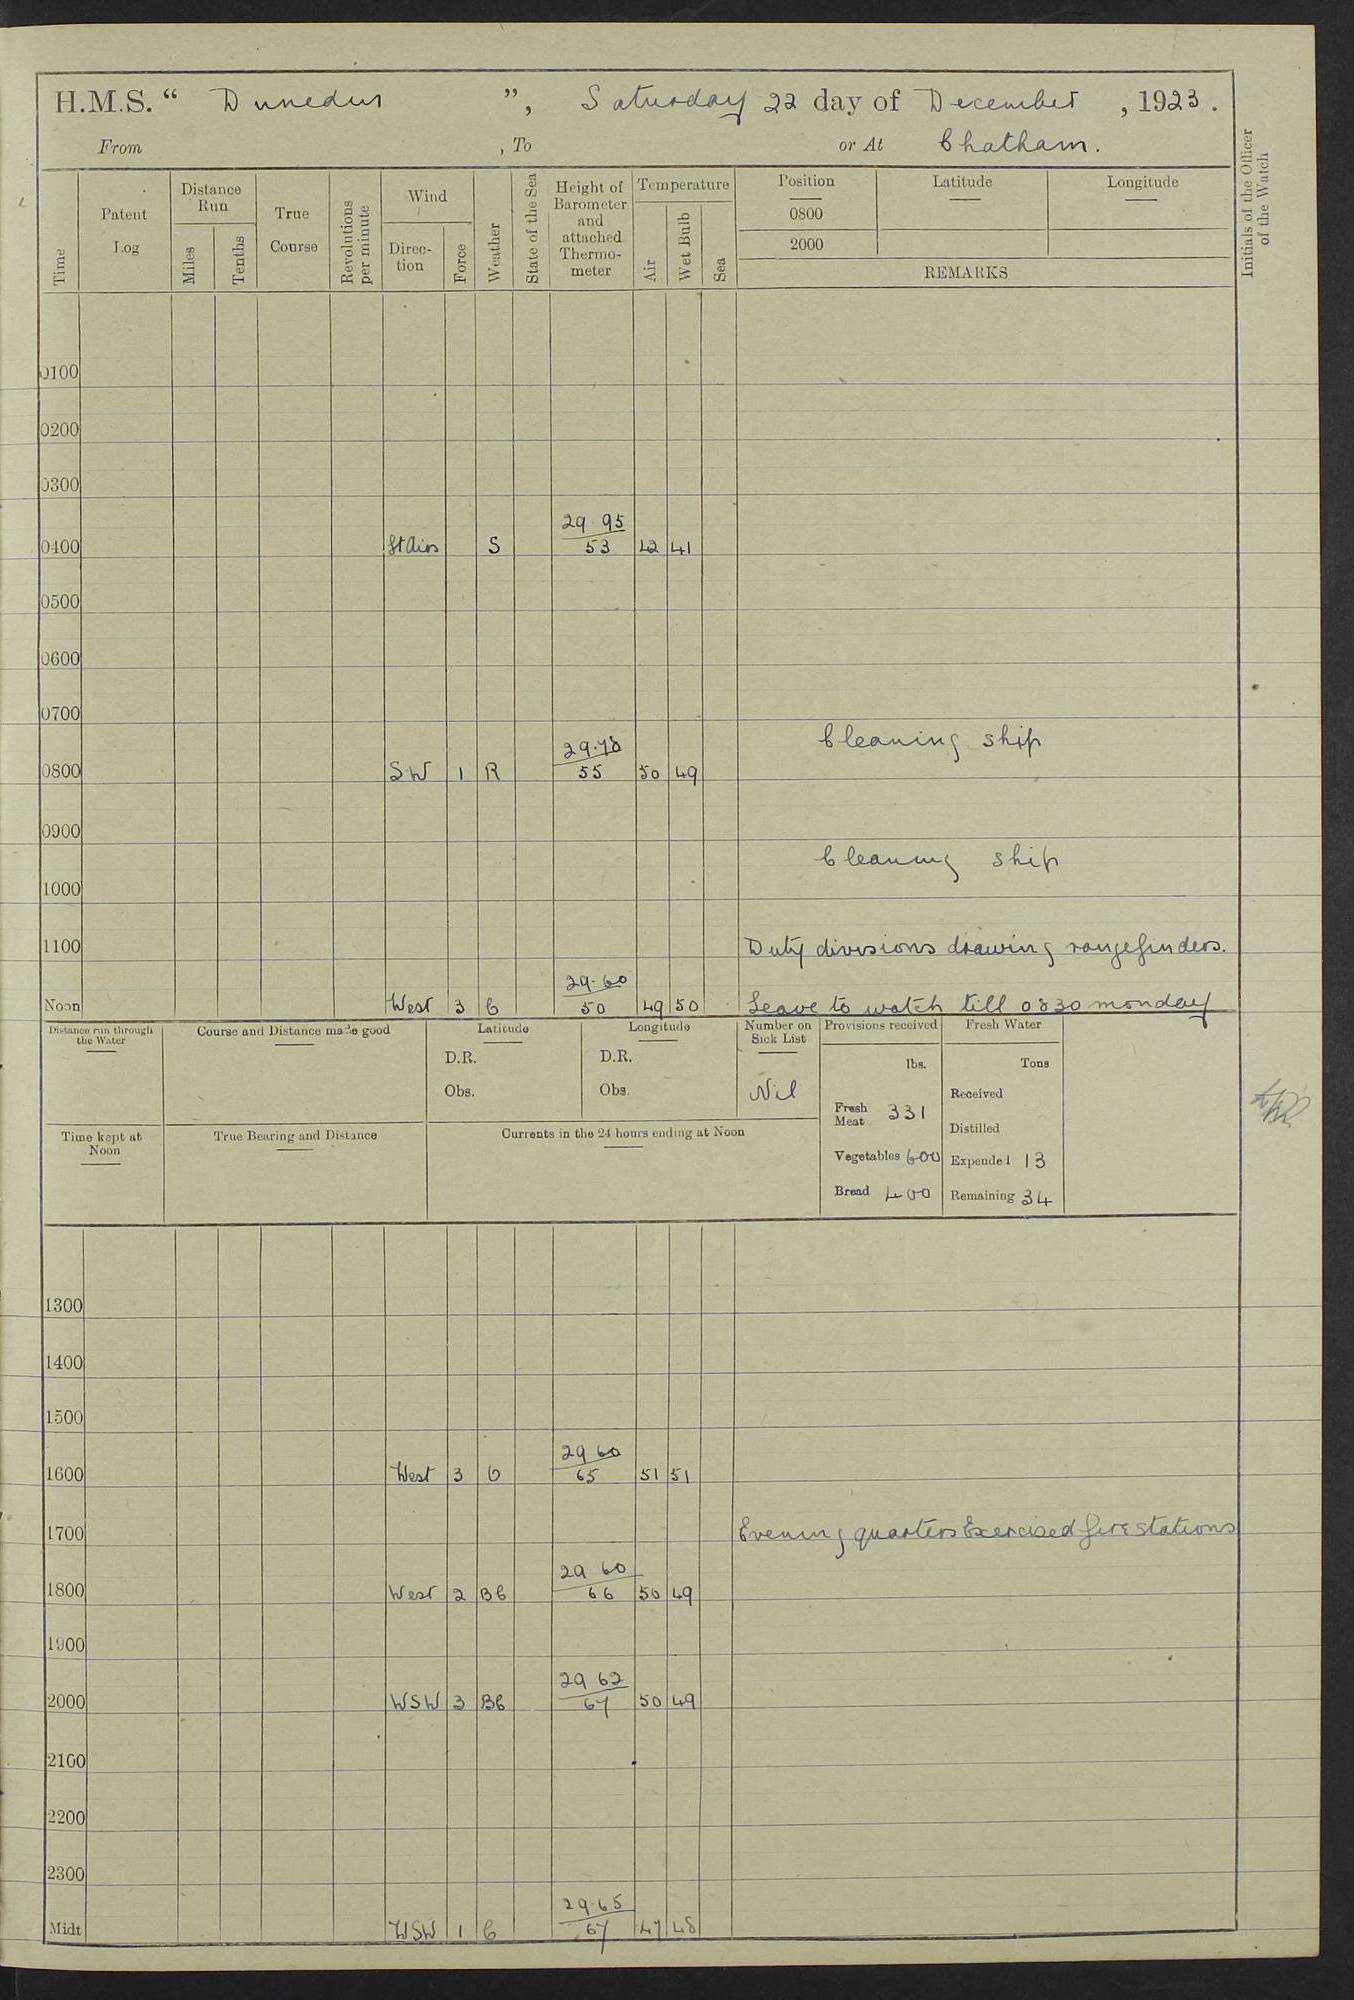 H.M.S. “ Dunedin ”, Saturday 22 day of December , 1923.
From , To or At Chatham.
Time
Patent Log
Distance Run
Miles
Tenths
True Course
Revolutions per minute
Wind
Direc-tion
Force
Weather
State of the Sea
Height of Barometer and attached Thermo-meter
Temperature
Air
Wet Bulb
Sea
Position
Latitude
Longitude
0800
2000
REMARKS
Initials of the Officer of the Watch
0100
0200
0300
29.95
0400 Lt Airs S 53 42 41
0500
0600
0700
Cleaning ship
29.78
0800 SW 1 R 55 50 49
0900
Cleaning ship
1000
1100 Duty divisions drawing rangefinders.
29.60
Noon West 3 C 50 49 50 Leave to watch till 0830 monday
Distance run through the Water
Course and Distance made good
Latitude
D.R.
Obs.
Longitude
D.R.
Obs.
Number on Sick List
Nil
Provisions received
lbs.
Fresh Meat 331
Vegetables 600
Bread 400
Fresh Water
Tons
Received
Distilled
Expended 13
Remaining 34
Time kept at Noon
True Bearing and Distance
Currents in the 24 hours ending at Noon
1300
1400
1500
29 60
1600 West 3 O 65 51 51
1700 Evening quarters Exercised fire stations
29 60
1800 West 2 BC 66 50 49
1900
29 62
2000 WSW 3 BC 67 50 49
2100
2200
2300
29.65
Midt WSW 1 C 67 47 48